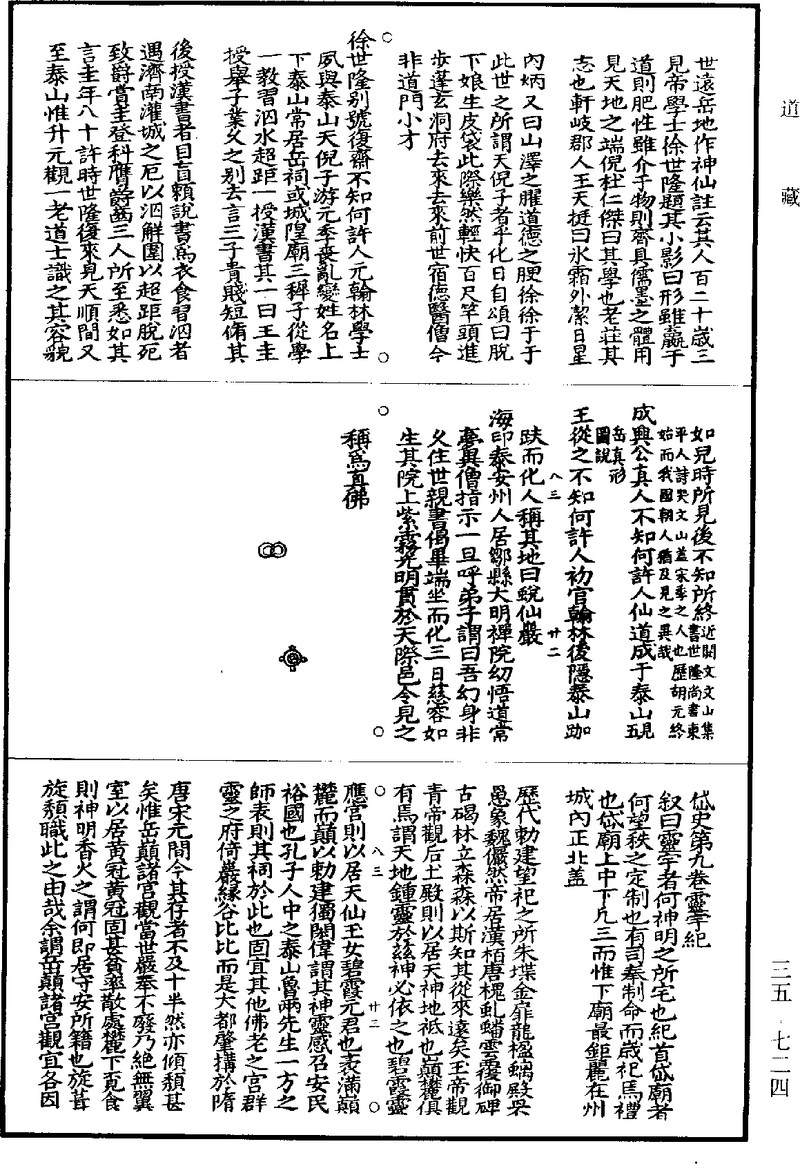 道藏
世遠岳地作神仙註云其人百二十歲三
見帝學士徐世隆題其小影曰形雖羸于
道則肥性雖介于物則齊具儒墨之體用
見天地之端倪杜仁傑曰其學也老莊其
志也軒岐郡人王天挺曰氷霜外潔日星
內炳又曰山澤之臞道德之腴徐徐于于
此世之所謂天倪子者乎化日自頌曰脫
下娘生皮袋此際樂然輕快百尺竿頭進
步蓬玄洞府去來去來前世宿德醫僧今
非道門小才
徐世隆別號復齋不知何許人元翰林學士
夙與泰山天倪子游元季喪亂變姓名上
下泰山常居岳祠或城隍廟三稺子從學
一教習泅水超距一授漢書其一曰王圭
授舉子業久之別去言三子貴賤短脩其
後授漢書者目盲賴說書爲衣食習泅者
遇濟南灌城之厄以泅解圍以超距脫死
致爵賞圭登科膺爵啚三人所至悉如其
言圭年八十許時世隆復來見天順間又
至泰山惟升元觀一老道士識之其容貌
如兒時所見後不知所終近閱文文山集書世隆尚書東
平人詩哭文山蓋宋季之人也歷胡元終
始而我國朝人猶及見之異哉
成興公真人不知何許人仙道成于泰山五見
岳真形
圖說
王從之不知何許人初官翰林後隱泰山跏
趺而化人稱其地曰蛻仙巖
海印泰安州人居鄒縣大明禪院幼悟道常
夢異僧指示一旦呼弟子謂曰吾幻身非
久住世親書偈畢端坐而化三日慈容如
生其院上紫霧光明貫於天際邑令見之
稱爲真佛
八三
廿二
岱史第九卷靈宇紀
叙曰靈宇者何神明之所宅也紀首岱廟者
何望秩之定制也有司奉制命而歲祀焉禮
也岱廟上中下凡三而惟下廟最鉅麗在州
城內正北蓋
歷代勅建望祀之所朱堞金扉龍楹螭殿罘
罳象魏儼然帝居漢栢唐槐虬蟠雲覆御碑
古碣林立森森以斯知其從來遠矣王帝觀
青帝觀后土殿則以居天神地祇也巔麓俱
有焉謂天地鍾靈於茲神必依之也碧霞靈
應宮則以居天仙玉女碧霞元君也表滿巔
麓而巔以勅建獨閎偉謂其神靈感召安民
裕國也孔子人中之泰山魯兩先生一方之
師表則其祠於此也固宜其他佛老之宮群
靈之府倚巖緣谷比比而是大都肇搆於隋
唐宋元間今其存者不及十半然亦傾頽甚
矣惟岳巔諸宮觀當世嚴奉不廢乃絕無翼
室以居黃冠黃冠固甚貧率散處麓下覓食
則神明香火之謂何即居守安所籍也旋葺
旋頽職此之由哉余謂岳巔諸宮觀宜各因
八三
廿三
三五·七二四